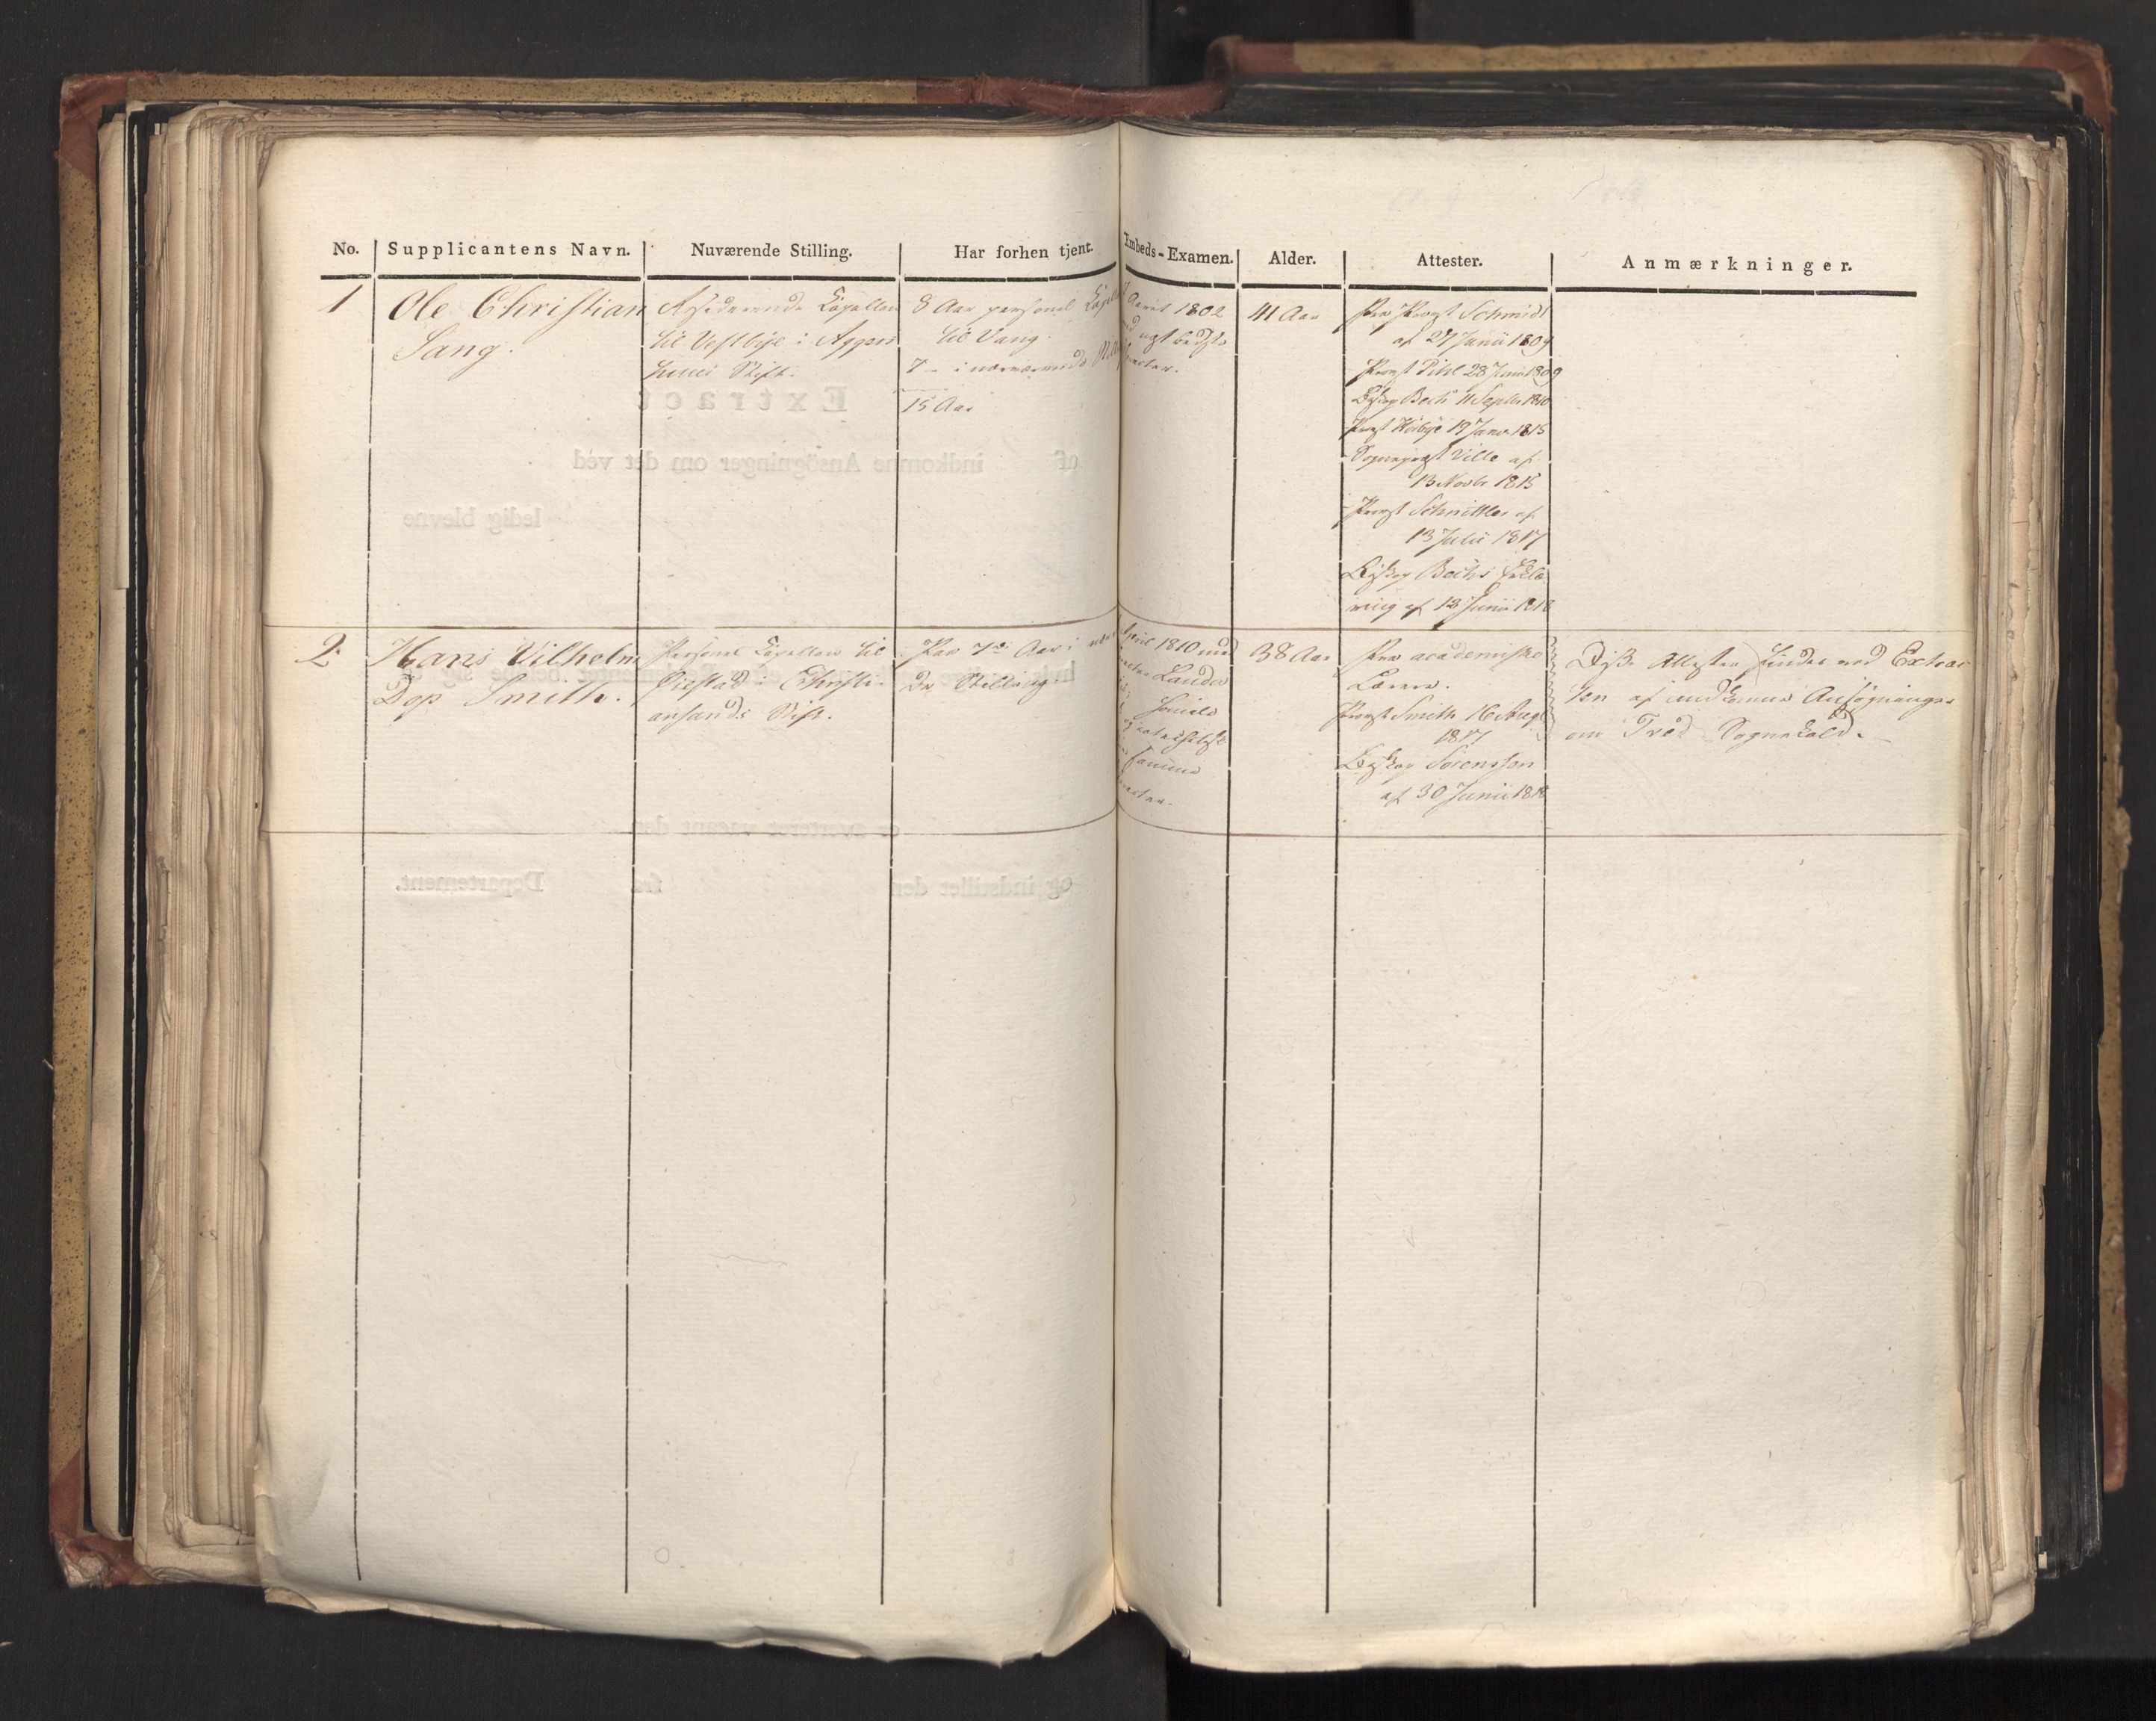 No. Supplicantens Navn. Nuværende Stilling. Har forhen tjent. Embeds-Examen. Alder. Attester. Anmærkninger.
1
Ole Christian
Lang.
Residerende Capellan
til Vestbye i Aggers
huus Stift.
8 Aar personel Capellan
til Vang.
7 - i nærværende
15 Aar
April 1802
41 Aar
Fra Provst Schmidt
af 27 Junii 1809
Provst Pihl 28 Junii 1809
Biskop Bech 11 Septbr 1810
Provst 19 Janr 1815
Sogneprest Wille af
13 Novbr 1815
Provst Schnitler af
13 Julii 1817
Biskop Bechs Erklæ
ring af 13 Junii 1818
2.
Hans Vilhelm
Dop Smith.
Personel Capellan til
Øiestad i Christi-
ansands Stift.
Har 7 Aar i
Stilling.
April 1810 med
Lauda
38 Aar
Fra academiske
Lærere.
Provst Smith 16 Aug
1817
Biskop Sørenssen
af 30 Junii 1818
Disse Attester findes ved Extrac
ten af indkomne Ansøgninger
om Sognekald.
Extract
af indkomne Ansögninger om det ved
ledig blevne
er averteret vacant den
og indstillet den fra Departement.